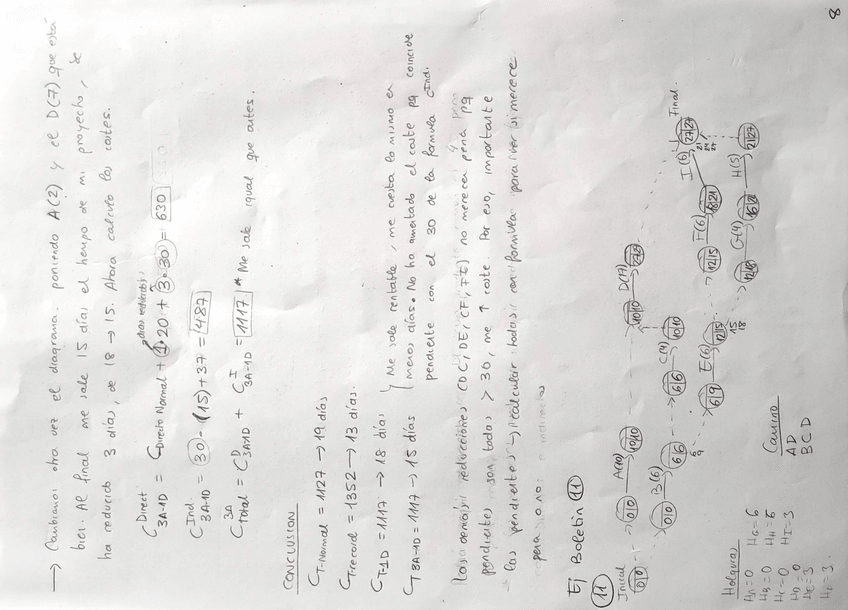 → Cambiamos otra vez el diagrama. poniendo A(2) y el D(7) que está
bien. Al final me sale 15 días el tiempo de mi proyecto, se
ha reducido 3 días, de 18 → 15. Ahora calculo los costes.
C Direct 3A-1D = C Directo Normal + (1·20 + 3·30) = 630
C Ind. 3A-1D = 30 · (15) + 37 = 487
C 3A Total = C D 3A-1D + C I 3A-1D = 1117 * Me sale igual que antes.
CONCLUSION
CT-Normal = 1127 → 19 días
CT-record = 1352 → 13 días.
CT-1D = 1117 → 18 días
CT 3A-1D = 1117 → 15 días
Me sale rentable, me cuesta lo mismo en
menos días. No ha aumentado el coste pq coincide
pendiente con el 30 de la formula CInd.
Las demás reducciones (DC, DE, CF, FE) no merecen pena pq
pendientes son todas > 30, me ↑ coste. Por eso, importante
las pendientes → calcular todas con formula para ver si merece
pena o no.
Ej Boletin 11
11
Inicial
0|0
0|0 A(10) 10|10
10|10 D(17) 27|27
0|0 B(6) 6|6
6|6 C(4) 10|10
6
9
6|9 E(6) 12|15
12
15
18
12|15 F(6) 18|21
I(6)
27|27
Final.
21
24
27
12|18 G(4) 16|22
H(5) 21|27
Holguras
HA=0 HG=6
HB=0 HH=6
HC=0 HI=3
HD=0
HE=3
HF=3
Camino
AD
BCD
8